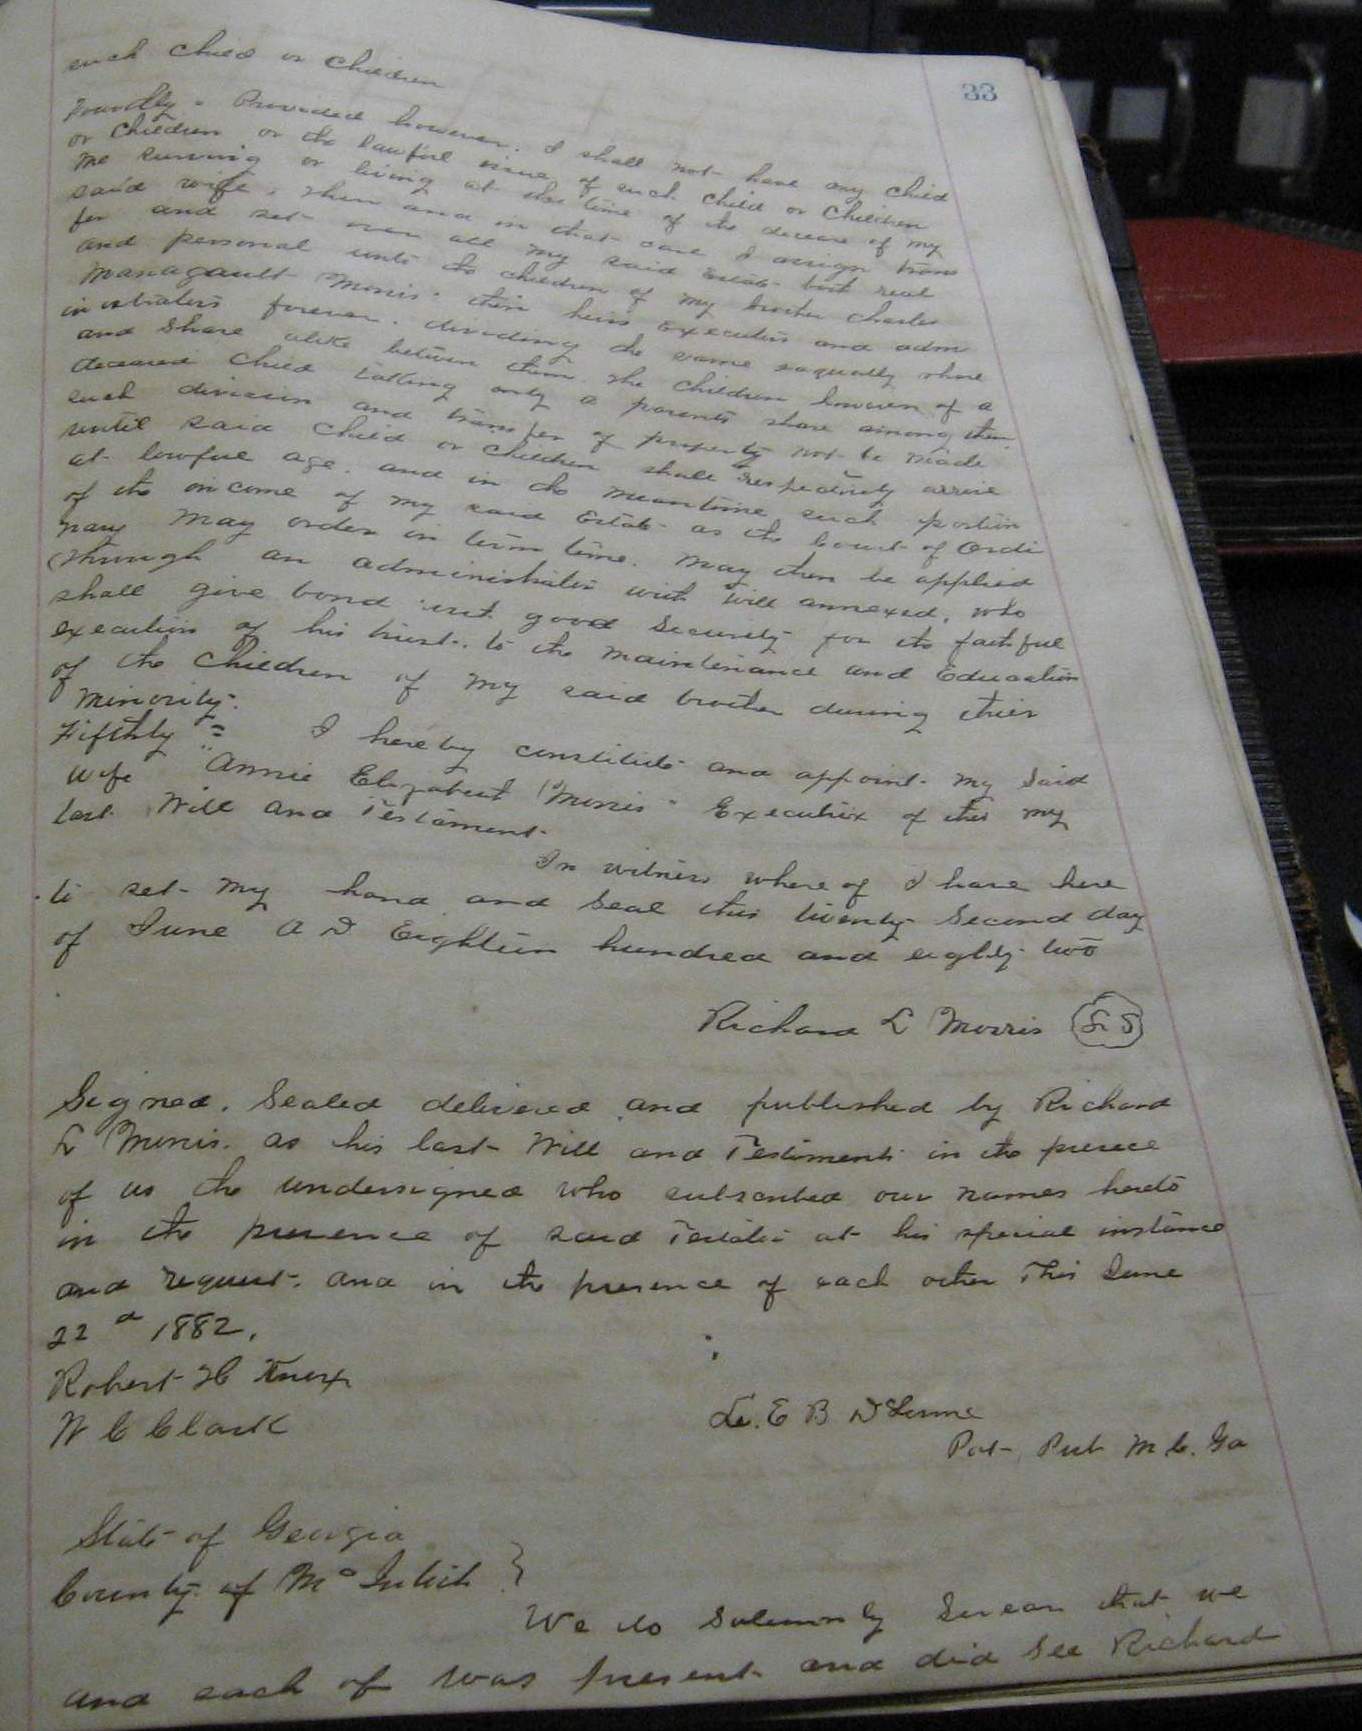 33
such child or children
Fourthly = Provided however. I shall not have any child
or children or the lawful issue of such child or children
me surviving or living at the time of the decease of my
said wife, then and in that case I assign trans
fer and set over all my said Estate both real
and personal unto the children of my brother Charles
Manaqault Morris their heirs Executors and adm
inistrators forever. dividing the same equally share
and share alike between them the children however of a
deceased child taking only a parents share among them
such division and transfer of property not be made
until said child or children shall respectively arrive
at lawful age. and in the meantime such portion
of the income of my said Estate as the Court of Ordi
nary may order in term time. may then be applied
through an administrator with will annexed, who
shall give bond with good security for the faithful
execution of his trust. to the maintenance and Education
of the children of my said brother during their
minority.
Fifthly = I hereby constitute and appoint my said
wife "Annie Elizabeth Morris" Executrix of this my
last Will and Testament.
In witness where of I have here
to set my hand and seal this twenty second day
of June A D Eighteen hundred and eighty two
Richard L Morris LS
Signed, Sealed delivered and published by Richard
L Morris. as his last Will and Testiment in the presece
of us the undersigned who subscribed our names hereto
in the presence of said Testator at his special instance
and request. and in the presence of each other This June
22d 1882.
Robert H Knox
W C Clark
E B
Pub M C. Ga
State of Georgia
County of McIntosh }
We do solemnly swear that we
and each of was present and did see Richard